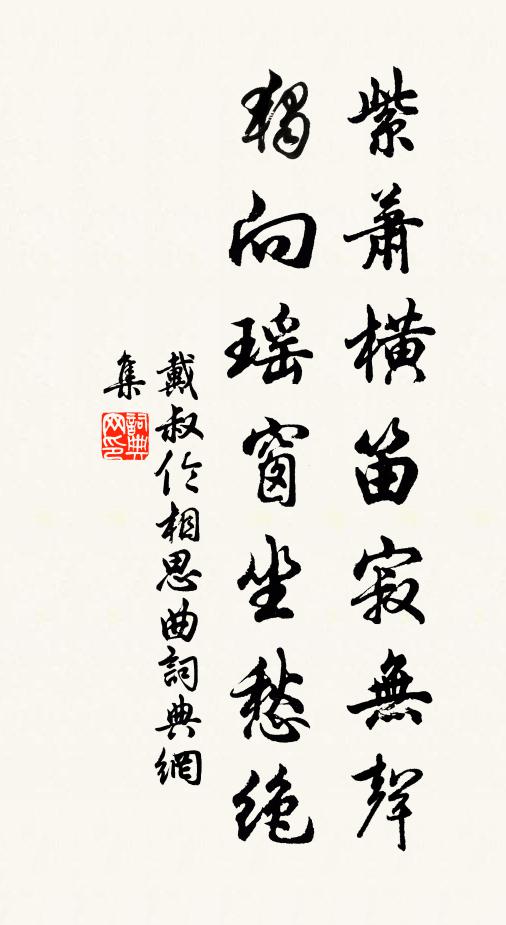 紫蕭橫笛寂無聲
獨向瑤窗坐愁絕
戴叔伦相思曲詞典網
集
詞典
网印